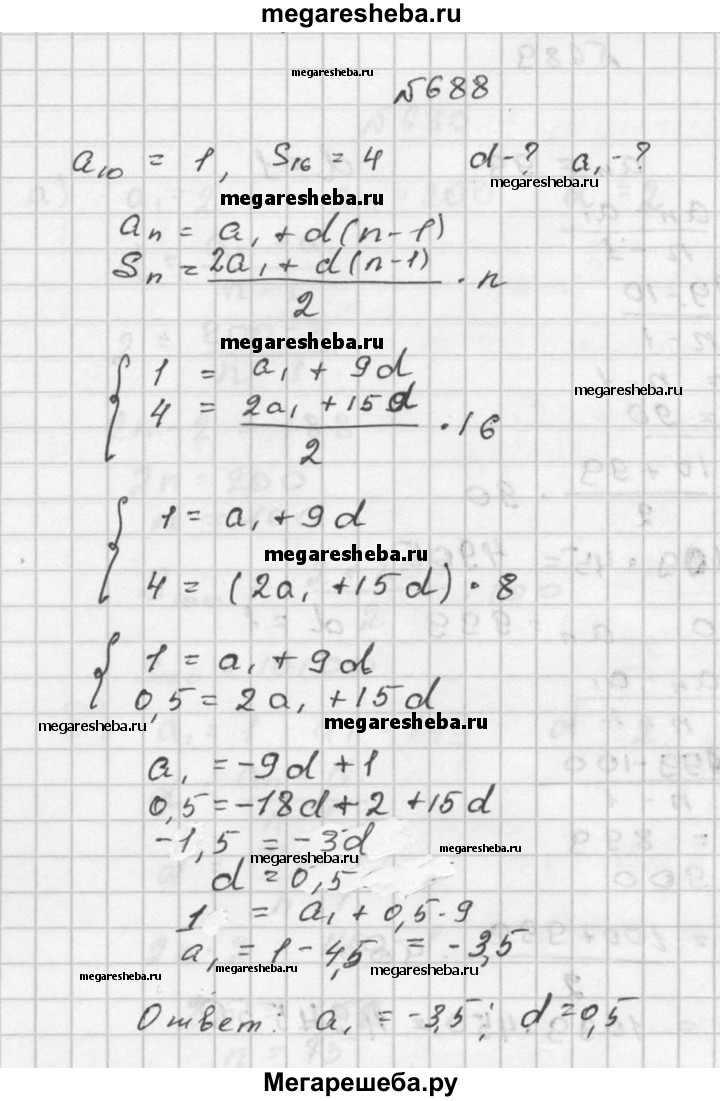 megaresheba.ru
megaresheba.ru
№688
a₁₀ = 1, S₁₆ = 4 d-? a₁-?
megaresheba.ru
megaresheba.ru
aₙ = a₁ + d(n-1)
Sₙ = (2a₁ + d(n-1))/2 · n
megaresheba.ru
{ 1 = a₁ + 9d
megaresheba.ru
4 = (2a₁ + 15d)/2 · 16
{ 1 = a₁ + 9d
megaresheba.ru
4 = (2a₁ + 15d) · 8
{ 1 = a₁ + 9d
0,5 = 2a₁ + 15d
megaresheba.ru megaresheba.ru
a₁ = -9d + 1
0,5 = -18d + 2 + 15d
-1,5 = -3d
megaresheba.ru
megaresheba.ru
d = 0,5
1 = a₁ + 0,5·9
a₁ = 1 - 4,5 = -3,5
megaresheba.ru megaresheba.ru megaresheba.ru
Ответ: a₁ = -3,5; d = 0,5
Мегарешеба.ру